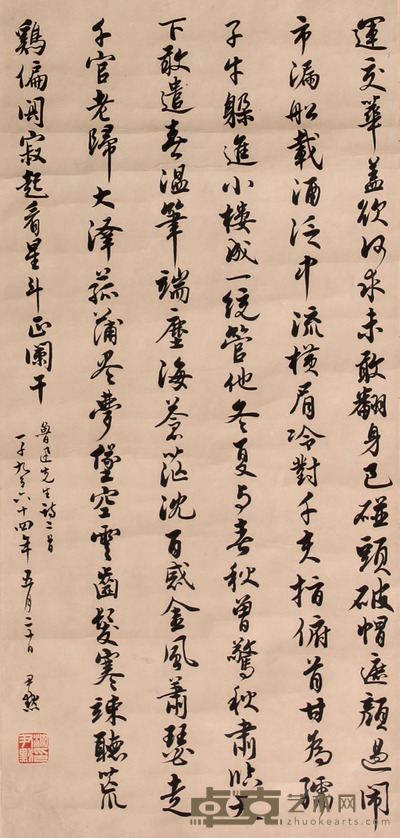 運交華蓋欲何求未敢翻身已碰頭破帽遮顏過鬧
市漏船載酒泛中流橫眉冷對千夫指俯首甘為孺
子牛躲進小樓成一統管他冬夏与春秋曾驚秋肅臨天
下敢遣春溫筆端塵海蒼茫沈百感金風蕭瑟走
千官老歸大澤菰蒲盡夢墮空雲齒髮寒竦聽荒
鷄偏闃寂起看星斗正闌干
魯迅先生詩二首
一千九百六十四年五月二十日 尹默
卓克艺术网
zhuokearts.com